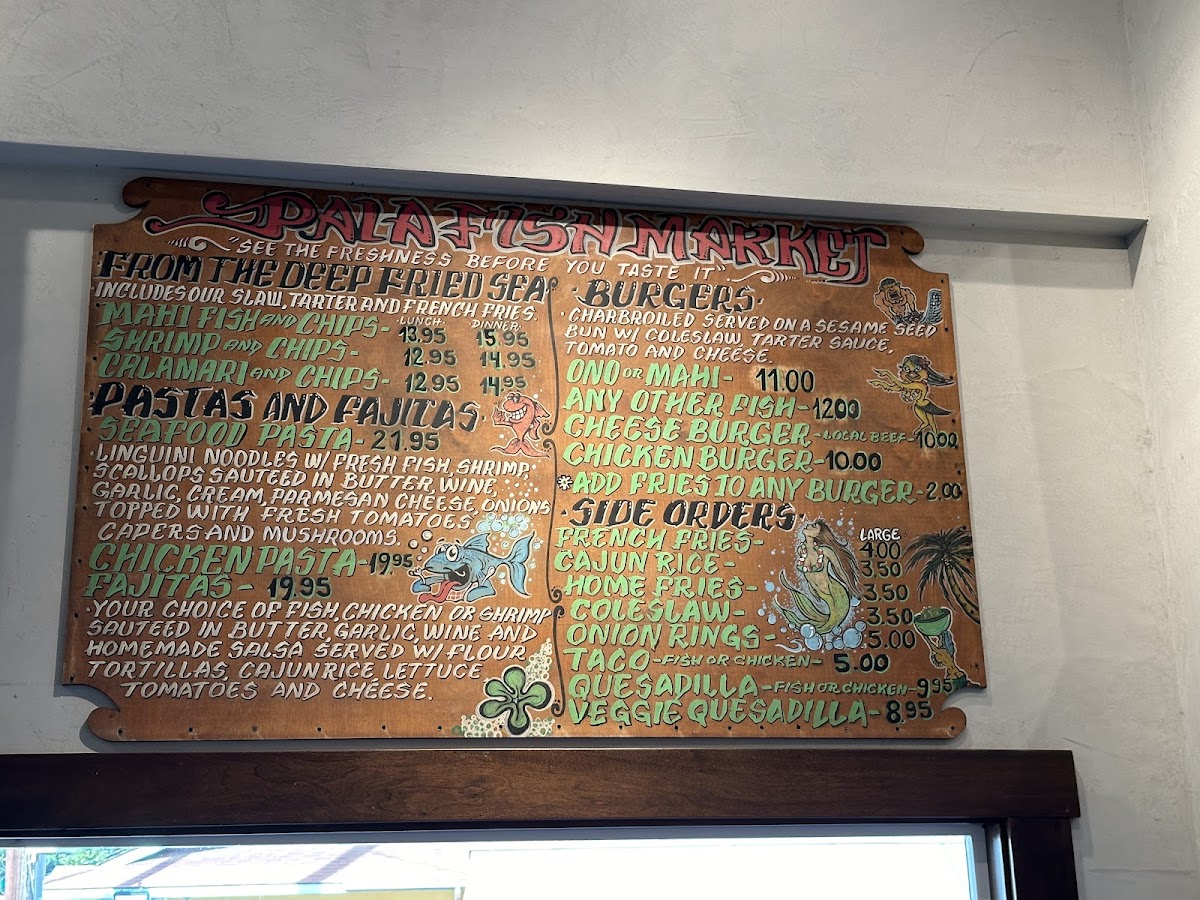 PAIA FISH MARKET
"SEE THE FRESHNESS BEFORE YOU TASTE IT"
FROM THE DEEP FRIED SEA
INCLUDES OUR SLAW, TARTER AND FRENCH FRIES.
LUNCH DINNER
MAHI FISH AND CHIPS- 13.95 15.95
SHRIMP AND CHIPS- 12.95 14.95
CALAMARI AND CHIPS- 12.95 14.95
PASTAS AND FAJITAS
SEAFOOD PASTA- 21.95
·LINGUINI NOODLES W/ FRESH FISH, SHRIMP·
SCALLOPS SAUTEED IN BUTTER, WINE,
GARLIC, CREAM, PARMESAN CHEESE, ONIONS
TOPPED WITH FRESH TOMATOES
CAPERS AND MUSHROOMS.
CHICKEN PASTA-19.95
FAJITAS- 19.95
·YOUR CHOICE OF FISH, CHICKEN OR SHRIMP
SAUTEED IN BUTTER, GARLIC, WINE AND
HOMEMADE SALSA SERVED W/ FLOUR
TORTILLAS, CAJUN RICE, LETTUCE
TOMATOES AND CHEESE.
·BURGERS·
·CHARBROILED SERVED ON A SESAME SEED
BUN W/ COLESLAW, TARTER SAUCE,
TOMATO AND CHEESE.
ONO OR MAHI- 11.00
ANY OTHER FISH-12.00
CHEESE BURGER-LOCAL BEEF-10.00
CHICKEN BURGER-10.00
*ADD FRIES TO ANY BURGER-2.00
·SIDE ORDERS·
LARGE
FRENCH FRIES- 4.00
CAJUN RICE- 3.50
HOME FRIES- 3.50
COLESLAW- 3.50
ONION RINGS- 5.00
TACO-FISH OR CHICKEN- 5.00
QUESADILLA-FISH OR CHICKEN-9.95
VEGGIE QUESADILLA-8.95